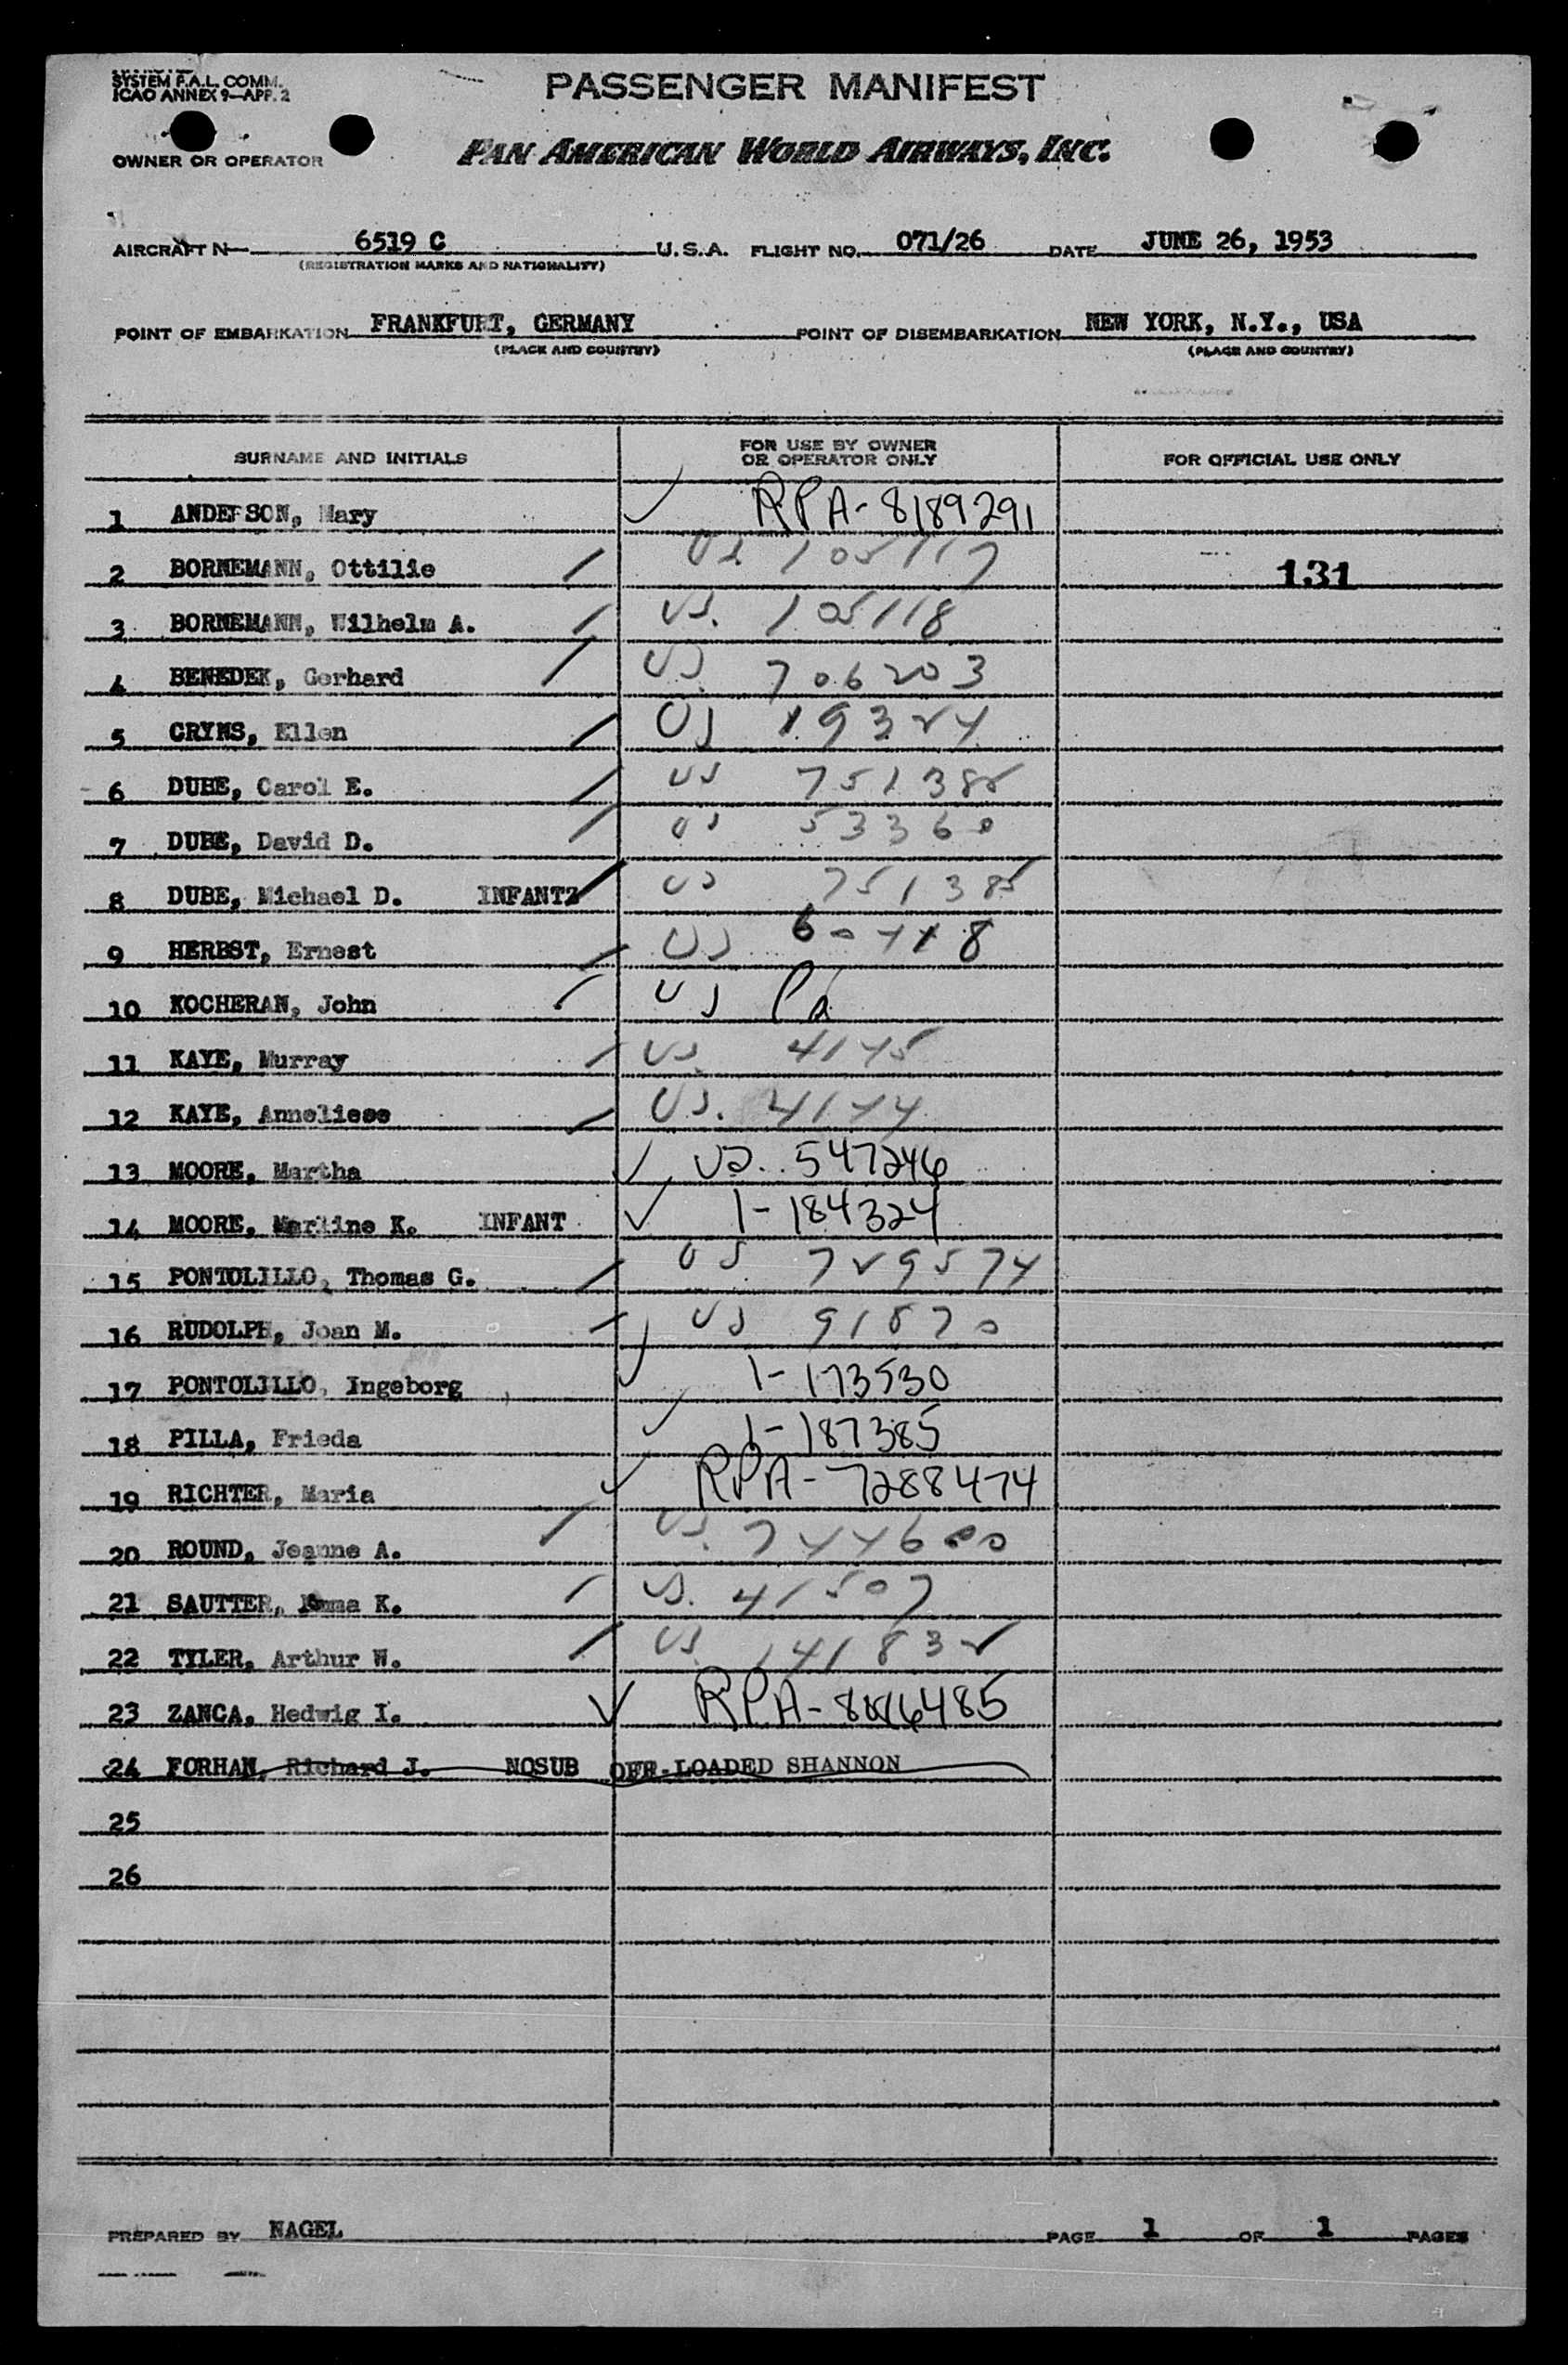 SYSTEM F.A.L. COMM.
ICAO ANNEX 9—APP. 2
PASSENGER MANIFEST
OWNER OR OPERATOR
PAN AMERICAN WORLD AIRWAYS, INC.
AIRCRAFT N— 6519 C U.S.A. FLIGHT NO. 071/26 DATE JUNE 26, 1953
(REGISTRATION MARKS AND NATIONALITY)
POINT OF EMBARKATION FRANKFURT, GERMANY POINT OF DISEMBARKATION NEW YORK, N.Y., USA
(PLACE AND COUNTRY) (PLACE AND COUNTRY)
SURNAME AND INITIALS FOR USE BY OWNER OR OPERATOR ONLY FOR OFFICIAL USE ONLY
1 ANDERSON, Mary RPA-8189291
2 BORNEMANN, Ottilie US 105117 131
3 BORNEMANN, Wilhelm A. US. 105118
4 BENEDEK, Gerhard US. 706203
5 CRYNS, Ellen US 19324
6 DUBE, Carol E. US 751382
7 DUBE, David D. US 53360
8 DUBE, Michael D. INFANT US 751385
9 HERBST, Ernest US
10 KOCHERAN, John US
11 KAYE, Murray US. 4145
12 KAYE, Anneliese US. 4144
13 MOORE, Martha US. 547246
14 MOORE, K. INFANT 1-184324
15 PONTOLILLO, Thomas G. US 729574
16 RUDOLPH, Joan M. US 91870
17 PONTOLILLO, Ingeborg 1-173530
18 PILLA, Frieda 1-187385
19 RICHTER, Maria RPA-7288474
20 ROUND, Jeanne A. US. 744600
21 SAUTTER, K. US. 41507
22 TYLER, Arthur W. US. 141832
23 ZANCA, Hedwig I. RPA-
24 FORHAN, Richard J. NOSUB OFF-LOADED SHANNON
25
26
PREPARED BY NAGEL PAGE 1 OF 1 PAGES